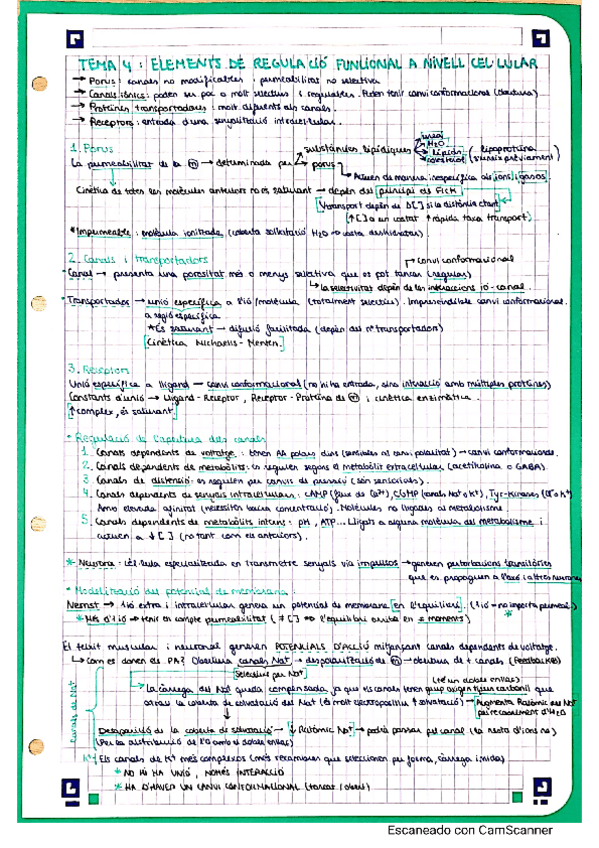 TEMA 4 : ELEMENTS DE REGULACIÓ FUNCIONAL A NIVELL CEL·LULAR
→ Porus : canals no modificables i permeabilitat no selectiva
→ Canals iònics: poden ser poc o molt selectius i regulables. Poden tenir canvi conformacional (obertura)
→ Proteïnes transportadores : molt diferents als canals.
→ Receptors : entrada d'una senyalització intracel·lular.
1. Porus
La permeabilitat de la m → determinada per
substàncies lipídiques
urea
H2O
Lípids
(lipoproteïna
s'uneix prèviament)
porus
Mouen de manera inespecífica als ions i gasos.
Cinètica de totes les molècules anteriors no és saturant → depèn del principi de Fick
[V transport depèn de Δ[ ] si la distància ctant]
(↑[ ] a un costat ↑ ràpida taxa transport)
*Impermeable : molècula ionitzada (coberta solvatació H2O → costa deshidratar)
2. Canals i transportadors
canvi conformacional
·Canal → presenta una porositat més o menys selectiva que es pot tancar (regular)
↳ la selectivitat depèn de les interaccions ió-canal.
·Transportador → unió específica a l'ió/molècula (totalment selectiu). Imprescindible canvi conformacional.
a regió específica
*És saturant → difusió facilitada (depèn del nº transportadors)
[Cinètica Michaelis-Menten.]
3. Receptors
Unió específica a lligand → canvi conformacional (no hi ha entrada, sinó interacció amb múltiples proteïnes)
Constants d'unió → Lligand-Receptor, Receptor-Proteïna de m i cinètica enzimàtica.
[↑complex, és saturant]
* Regulació de l'obertura dels canals
1. Canals dependents de voltatge : tenen AA polars dins (sensibles al canvi polaritat) → canvi conformacional.
2. Canals dependents de metabòlits: es regulen segons el metabòlit extracel·lular (acetilcolina o GABA).
3. Canals de distensió: es regulen per canvis de pressió (són sensorials).
4. Canals dependents de senyals intracel·lulars : cAMP (flux de Ca2+), cGMP (canals Na+ o K+), Tyr-kinases (Cl- o K+)
Amb elevada afinitat (necessiten baixa concentració). Molècules no lligades al metabolisme.
5. Canals dependents de metabòlits interns : pH, ATP... Lligats a alguna molècula del metabolisme i
actuen a ↓[ ] (no tant com els anteriors).
* Neurona : cèl·lula especialitzada en transmetre senyals via impulsos → generen pertorbacions transitòries
que es propaguen a l'axó i altres neurones
* Modelització del potencial de membrana :
Nernst → 1 ió extra i intracel·lular genera un potencial de membrana [en l'equilibri]. (1 ió = no importa permeab.)
*Més d'1 ió → tenir en compte permeabilitat (≠[ ] ⇒ l'equilibri arriba en ≠ moments)
El teixit muscular i neuronal generen POTENCIALS D'ACCIÓ mitjançant canals dependents de voltatge.
↳ Com es donen els PA? Obertura canals Na+ → despolarització de m → obertura de + canals (Feedback ⊕)
Selectiu per Na+
(té un doble enllaç)
Canals de Na+
↳ la càrrega del Na+ queda compensada ja que els canals tenen grup oxigen (grup carbonil) que
atrau la coberta de solvatació del Na+ (és molt electropositiu ↑ solvatació) → Augmenta Ratòmic del Na+
pel recobriment d'H2O
Desaparició de la coberta de solvatació → ↓ Ratòmic Na+ → podrà passar pel canal (la resta d'ions no)
(Per la distribució de l'O amb el doble enllaç)
K+ Els canals de K+ més complexos (més mecanismes que seleccionen per forma, càrrega i mida)
* NO HI HA UNIÓ, NOMÉS INTERACCIÓ
* HA D'HAVER UN CANVI CONFORMACIONAL (tancar i obrir)
Escaneado con CamScanner